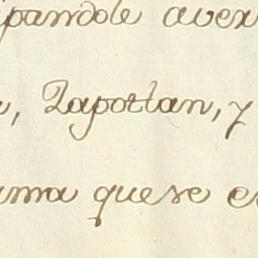 ipandole avex
a, Zapotlan, y
uma quese e